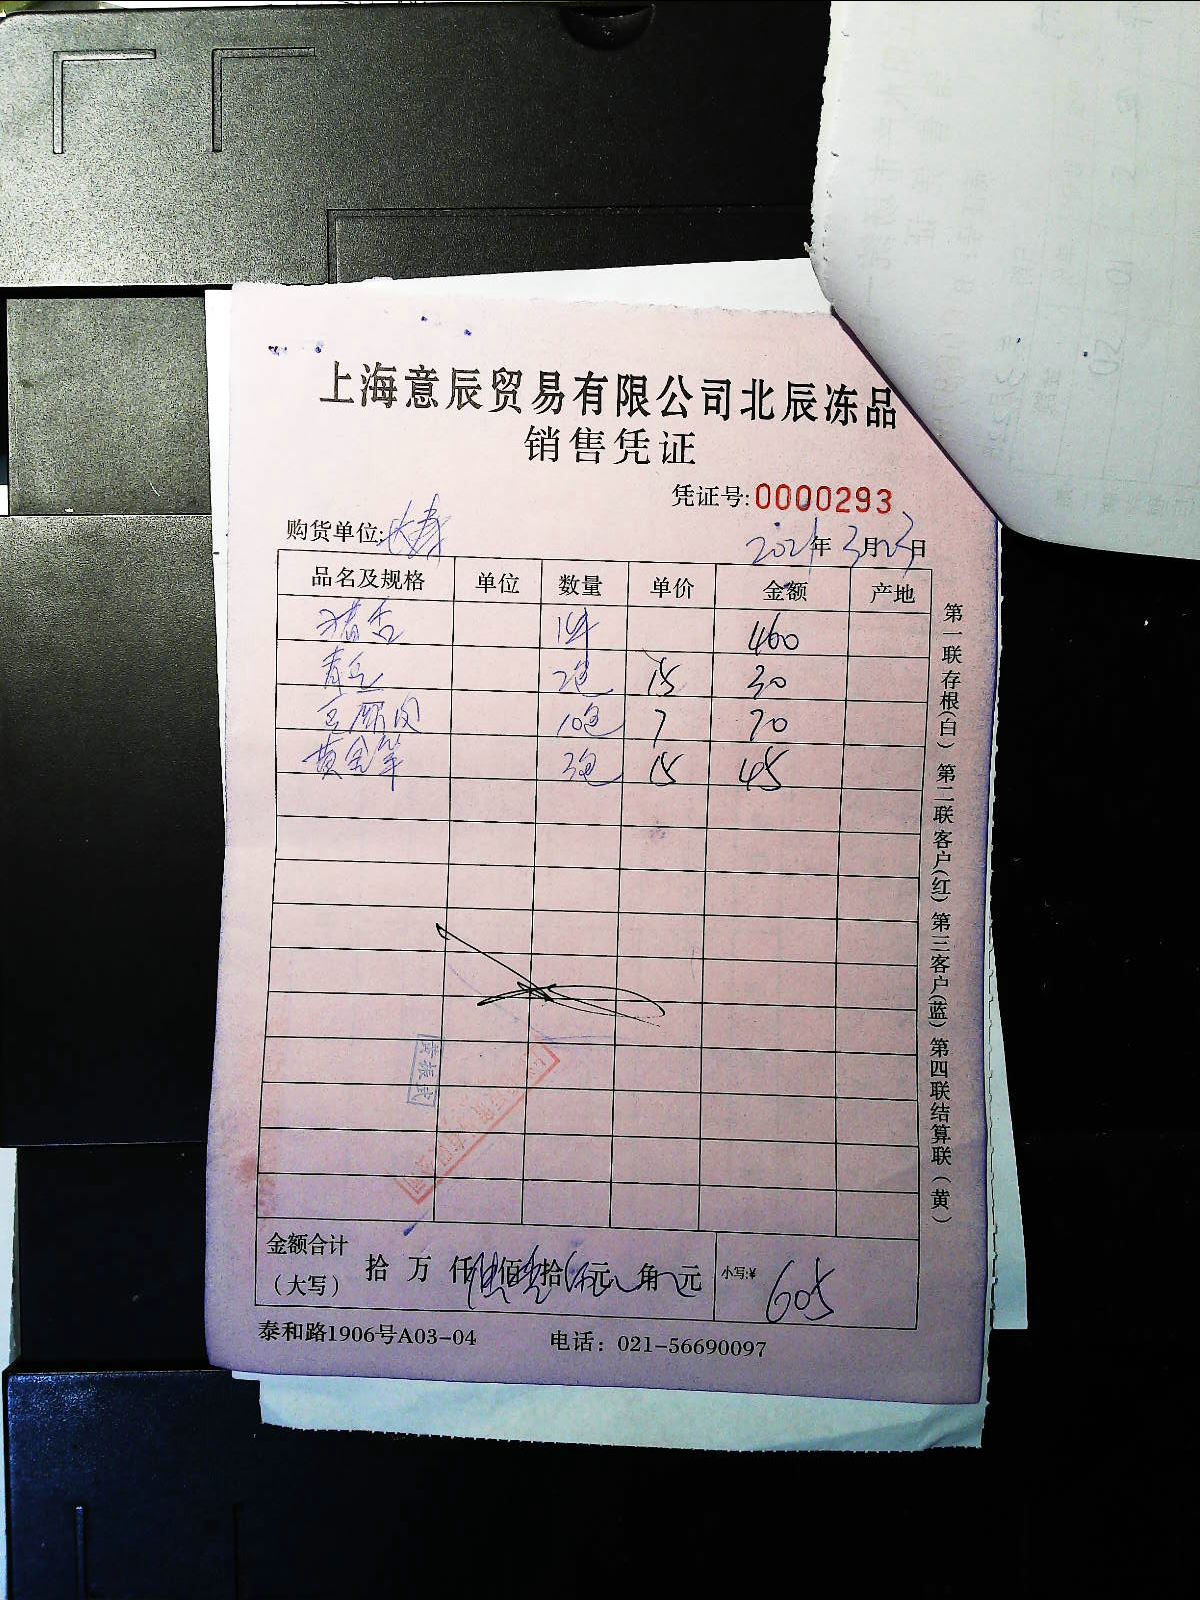 上海意辰贸易有限公司北辰冻品
销售凭证
凭证号:0000293
购货单位:长寿
2021年3月23日
品名及规格 单位 数量 单价 金额 产地
猪舌 1件 460
青豆 2包 15 30
10包 7 70
黄金笋 3包 15 45
第一联存根(白) 第二联客户(红) 第三客户(蓝) 第四联结算联(黄)
黄振武
金额合计
(大写) 拾 万 仟 佰 拾 元 角 元 小写:¥ 605
泰和路1906号A03-04 电话: 021-56690097